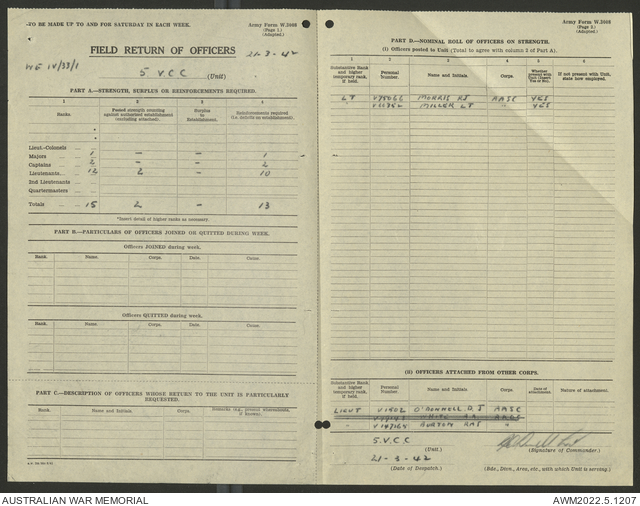 TO BE MADE UP TO AND FOR SATURDAY IN EACH WEEK.
Army Form W.3008
(Page 1.)
(Adapted.)
FIELD RETURN OF OFFICERS
21-3-42
WE IV/33/1
5 V.C.C (Unit)
PART A.—STRENGTH, SURPLUS OR REINFORCEMENTS REQUIRED.
1 2 3 4
Ranks. Posted strength counting against authorised establishment (excluding attached). Surplus to Establishment. Reinforcements required (i.e. deficits on establishment).
*
*
Lieut.-Colonels
Majors 1 — — 1
Captains 2 — — 2
Lieutenants 12 2 — 10
2nd Lieutenants
Quartermasters
Totals 15 2 - 13
*Insert detail of higher ranks as necessary.
PART B.—PARTICULARS OF OFFICERS JOINED OR QUITTED DURING WEEK.
Officers JOINED during week.
Rank. Name. Corps. Date. Cause.
Officers QUITTED during week.
Rank. Name. Corps. Date. Cause.
PART C.—DESCRIPTION OF OFFICERS WHOSE RETURN TO THE UNIT IS PARTICULARLY REQUESTED.
Rank. Name. Corps. Remarks (e.g., present whereabouts, if known).
Army Form W.3008
(Page 2.)
(Adapted.)
PART D.—NOMINAL ROLL OF OFFICERS ON STRENGTH.
(I) Officers posted to Unit (Total to agree with column 2 of Part A).
1 2 3 4 5 6
Substantive Rank and higher temporary rank, if held. Personal Number. Name and Initials. Corps. Whether present with Unit (Insert Yes or No). If not present with Unit, state how employed.
LT MORRIS RJ AASC YES
" MILLER LT " YES
(II) OFFICERS ATTACHED FROM OTHER CORPS.
Substantive Rank and higher temporary rank, if held. Personal Number. Name and Initials. Corps. Date of attachment. Nature of attachment.
LIEUT V1802 O'DONNELL O.J AASC
" V147164 BURTON RAS "
5 V.C.C (Unit.)
(Signature of Commander.)
21-3-42
(Date of Despatch.)
(Bde., Divn., Area, etc., with which Unit is serving.)
AUSTRALIAN WAR MEMORIAL
AWM2022.5.1207